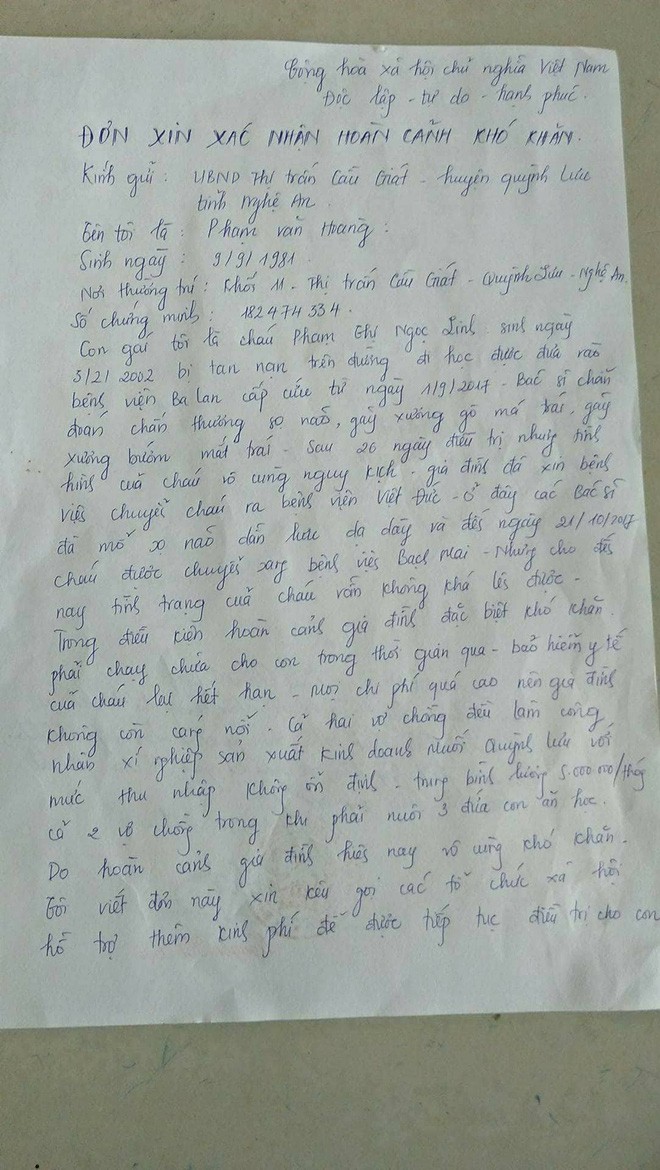 Cộng hoà xã hội chủ nghĩa Việt Nam
Độc lập - tự do - hạnh phúc.
ĐƠN XIN XÁC NHẬN HOÀN CẢNH KHÓ KHĂN.
Kính gửi : UBND Thị trấn Cầu Giát - huyện quỳnh Lưu
tỉnh Nghệ An.
Tên tôi là : Phạm văn Hoàng.
Sinh ngày : 9/9/1981
Nơi thường trú : Khối 11 - Thị trấn Cầu Giát - Quỳnh Lưu - Nghệ An.
Số chứng minh : 182474334.
Con gái tôi là cháu Phạm Thị Ngọc Linh sinh ngày
3/2/2002 bị tan nạn trên đường đi học được đưa vào
bệnh viện Ba Lan cấp cứu từ ngày 1/9/2017 - Bác sĩ chẩn
đoán chấn thương sọ não, gãy xương gò má trái, gãy
xương bướm mắt trái - Sau 26 ngày điều trị nhưng tình
hình của cháu vô cùng nguy kịch. gia đình đã xin bệnh
viện chuyển cháu ra bệnh viện Việt Đức - ở đây các Bác sĩ
đã mổ sọ não dẫn lưu dạ dày và đến ngày 21/10/2017
cháu được chuyển sang bệnh viện Bạch Mai - Nhưng cho đến
nay tình trạng của cháu vẫn không khá lên được -
Trong điều kiện hoàn cảnh gia đình đặc biệt khó khăn.
phải chạy chữa cho con trong thời gian qua - bảo hiểm y tế
của cháu lại hết hạn - mọi chi phí quá cao nên gia đình
không còn cáng nổi. Cả hai vợ chồng đều làm công
nhân xí nghiệp sản xuất kinh doanh muối Quỳnh lưu với
mức thu nhập không ổn định - trung bình lương 5.000.000/tháng
cả 2 vợ chồng trong khi phải nuôi 3 đứa con ăn học.
Do hoàn cảnh gia đình hiện nay vô cùng khó khăn.
Tôi viết đơn này xin kêu gọi các tổ chức xã hội
hỗ trợ thêm kinh phí để được tiếp tục điều trị cho con